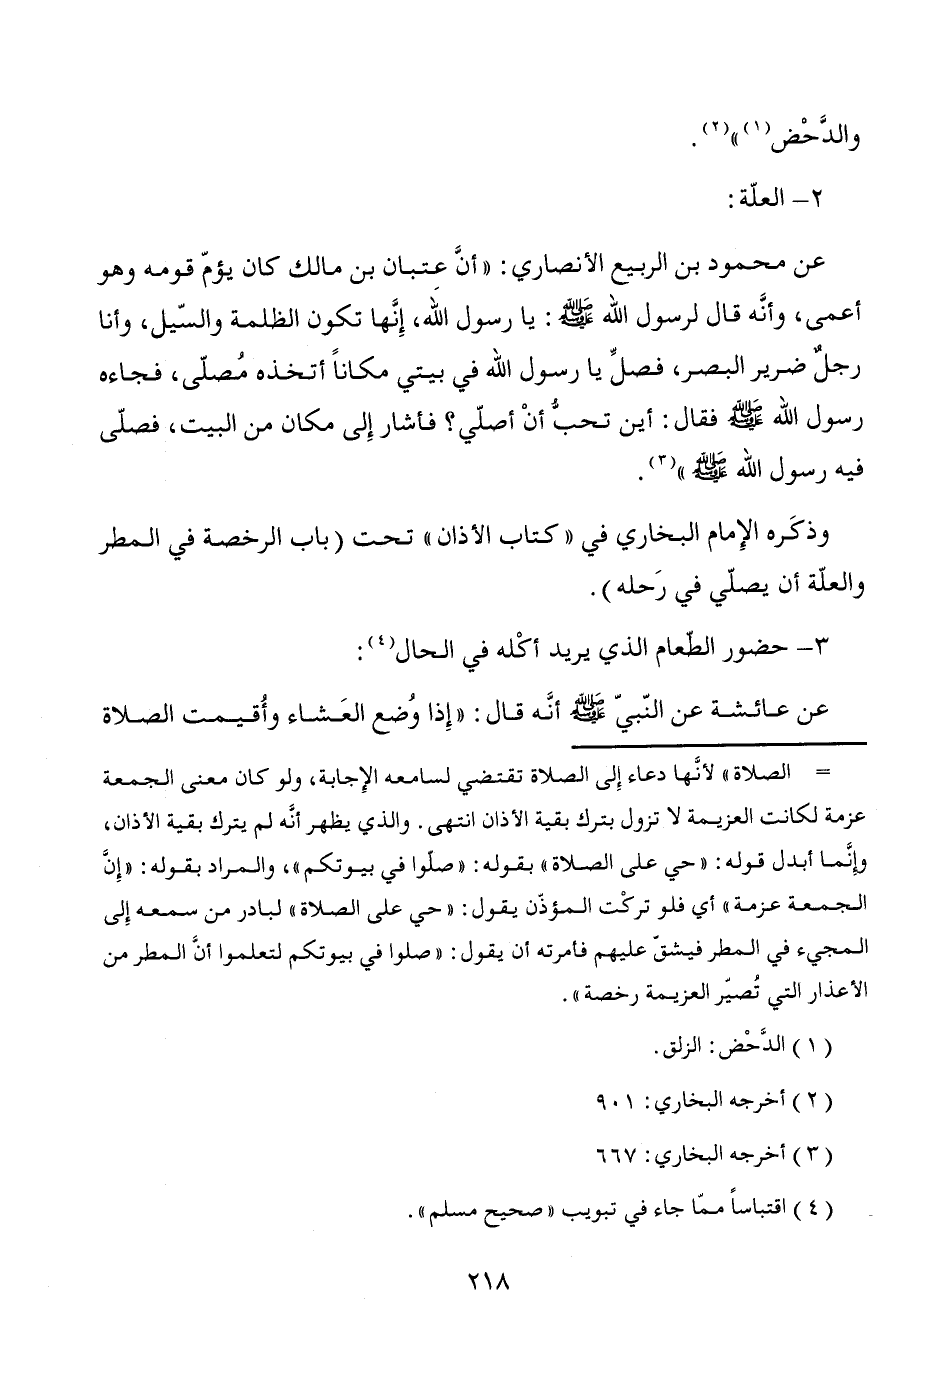 والدَّحْض(١)»(٢).
٢- العلّة:
عن محمود بن الربيع الأنصاري: «أنَّ عِتبان بن مالك كان يؤمّ قومه وهو
أعمى، وأنَّه قال لرسول الله ﷺ: يا رسول الله، إِنَّها تكون الظلمة والسّيل، وأنا
رجلٌ ضرير البصر، فصلِّ يا رسول الله في بيتي مكاناً أتخذه مُصلّى، فجاءه
رسول الله ﷺ فقال: أين تحبُّ أنْ أصلّي؟ فأشار إِلى مكان من البيت، فصلّى
فيه رسول الله ﷺ»(٣).
وذكَره الإِمام البخاري في «كتاب الأذان» تحت (باب الرخصة في المطر
والعلّة أن يصلّي في رَحله).
٣- حضور الطّعام الذي يريد أكْله في الحال(٤):
عن عائشة عن النّبيّ ﷺ أنَّه قال: «إِذا وُضع العَشاء وأُقيمت الصلاة
= الصلاة» لأنَّها دعاء إِلى الصلاة تقتضي لسامعه الإِجابة، ولو كان معنى الجمعة
عزمة لكانت العزيمة لا تزول بترك بقية الأذان انتهى. والذي يظهر أنَّه لم يترك بقية الأذان،
وإِنَّما أبدل قوله: «حي على الصلاة» بقوله: «صلّوا في بيوتكم»، والمراد بقوله: «إِنَّ
الجمعة عزمة» أي فلو تركْت المؤذّن يقول: «حي على الصلاة» لبادر من سمعه إِلى
المجيء في المطر فيشقّ عليهم فأمرته أن يقول: «صلوا في بيوتكم لتعلموا أنَّ المطر من
الأعذار التي تُصيّر العزيمة رخصة».
(١) الدَّحْض: الزلق.
(٢) أخرجه البخاري: ٩٠١
(٣) أخرجه البخاري: ٦٦٧
(٤) اقتباساً ممّا جاء في تبويب «صحيح مسلم».
٢١٨